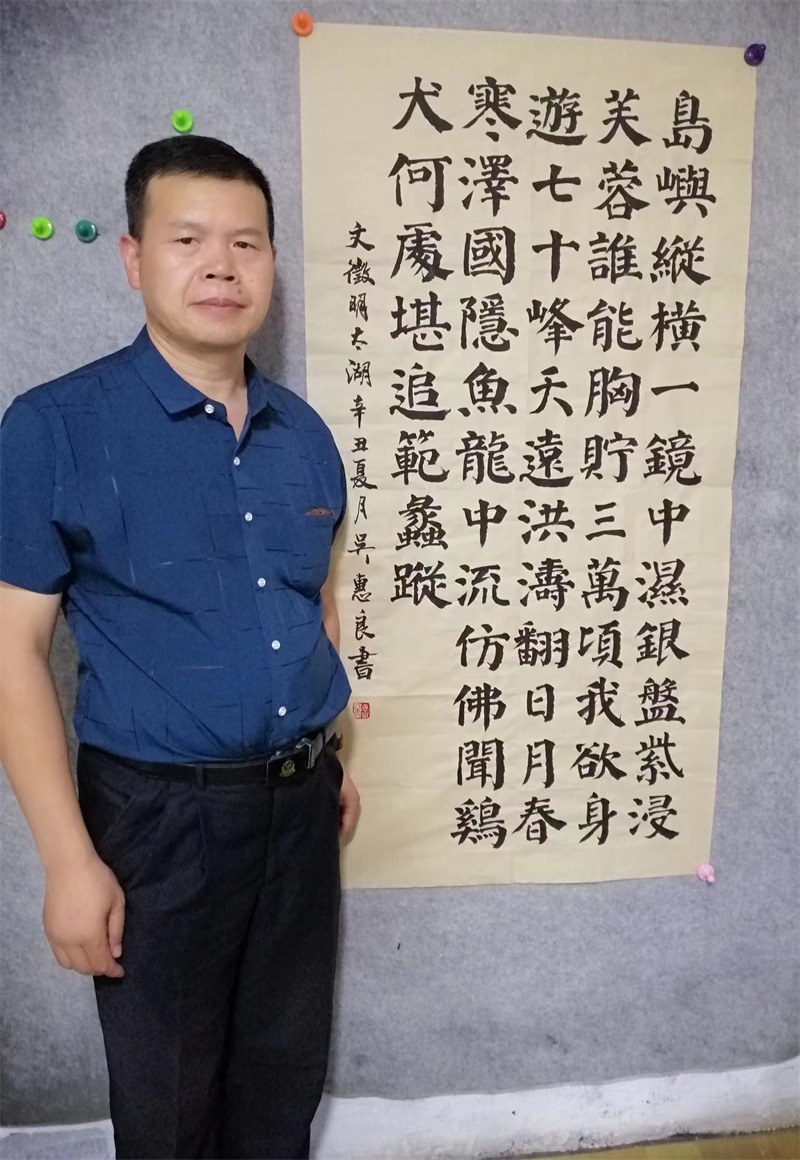 島嶼縱橫一鏡中濕銀盤紫浸
芙蓉誰能胸貯三萬頃我欲身
遊七十峰天遠洪濤翻日月春
寒澤國隱魚龍中流仿佛聞鷄
犬何處堪追範蠡蹤
文徵明太湖辛丑夏月吳惠良書